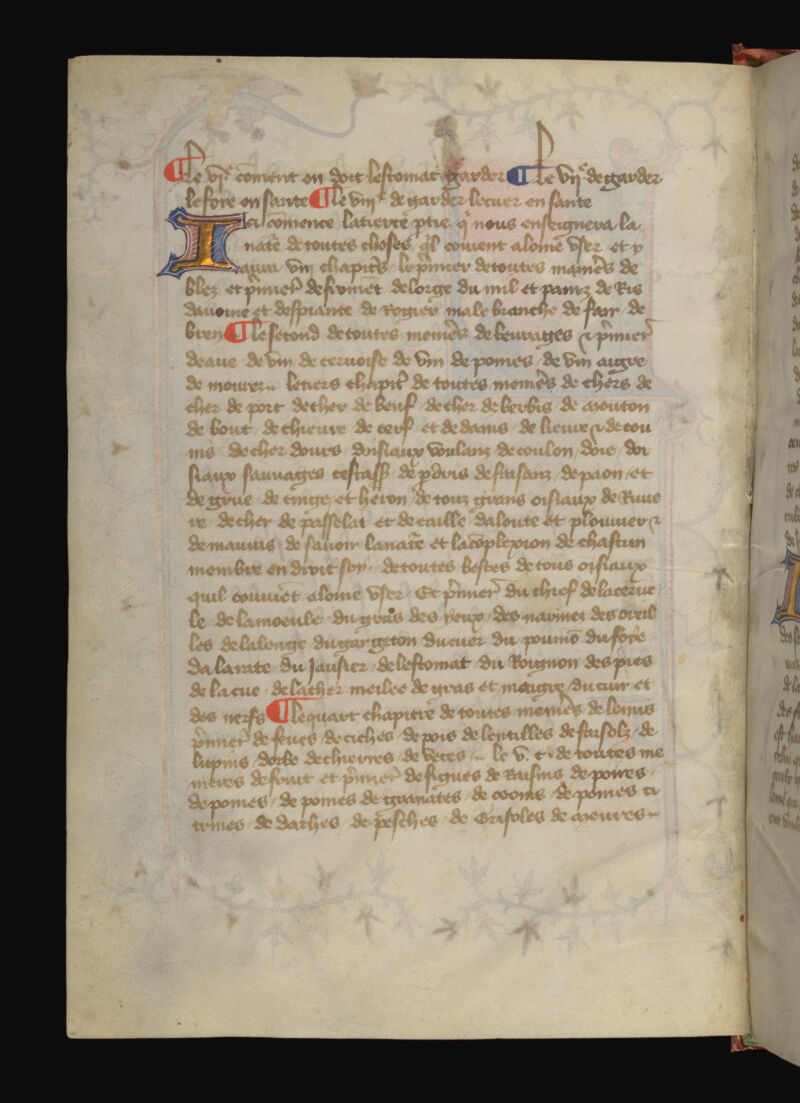 ¶ Le vjᵉ coment on doit lestomac garder ¶ Le vijᵉ de garder
le foie en sante ¶ Le viijᵉ de garder le cuer en sante
Ici comence la tierce ptie q̄ nous enseignera la
natē de toutes choses q̄l couient a lome vser et y
aura vin chapitēs le p̄mier de toutes manieēs de
blez et p̄mier̄ de fromēt de lorge du mil et paniz de Ris
dauoine et despiaute de Rogier male branche de fair de
bren ¶ Le second de toutes menieēs de beurages et p̄mier̄
de aue de vin de ceruoise de vin de pomes de vin aigre
de mourez .. le tiers chapit̄ de toutes menieēs de chers de
cher de port de cher de beuf de cher de berbis de mouton
de bouc de chieure de cerf et de dains de lieure et de con
nis de cher dours doisiaux voulanz de coulon doie doi
siaux sauuages de p̄dris de faisanz de paon et
de grue de cinge et heron de touz grans oisiaux de Riuie
re de cher de passelat et de caille daloute et plouuier et
de mauuis de sauoir la natē et la cōplexion de chascun
membre en droit soy de toutes bestes de tous oysiaux
quil couuiēt a lome vser Et p̄mier̄ du chief de la ceruel
le de la moeule du gras des yeux des narines des oreil
les de la lenge du gargeton du cuer du poumō du foie
da la rate du Jausier de lestomac du Roignon des pies
de la cue de la cher meslee de gras et maigre du cuir et
des nerfs ¶ Le quart chapitre de toutes menieēs de leinis
p̄mier̄ de feues de ciches de pois de lentilles de faisolz de
lupins dorbe de chierres de veces .. le v. c. de toutes me
nieres de fruit et p̄mier̄ de figues de Raisins de poires
de pomes de pomes de granates de cooins de pomes ci
trines de dathes de pesches de Grisoles de meures ..